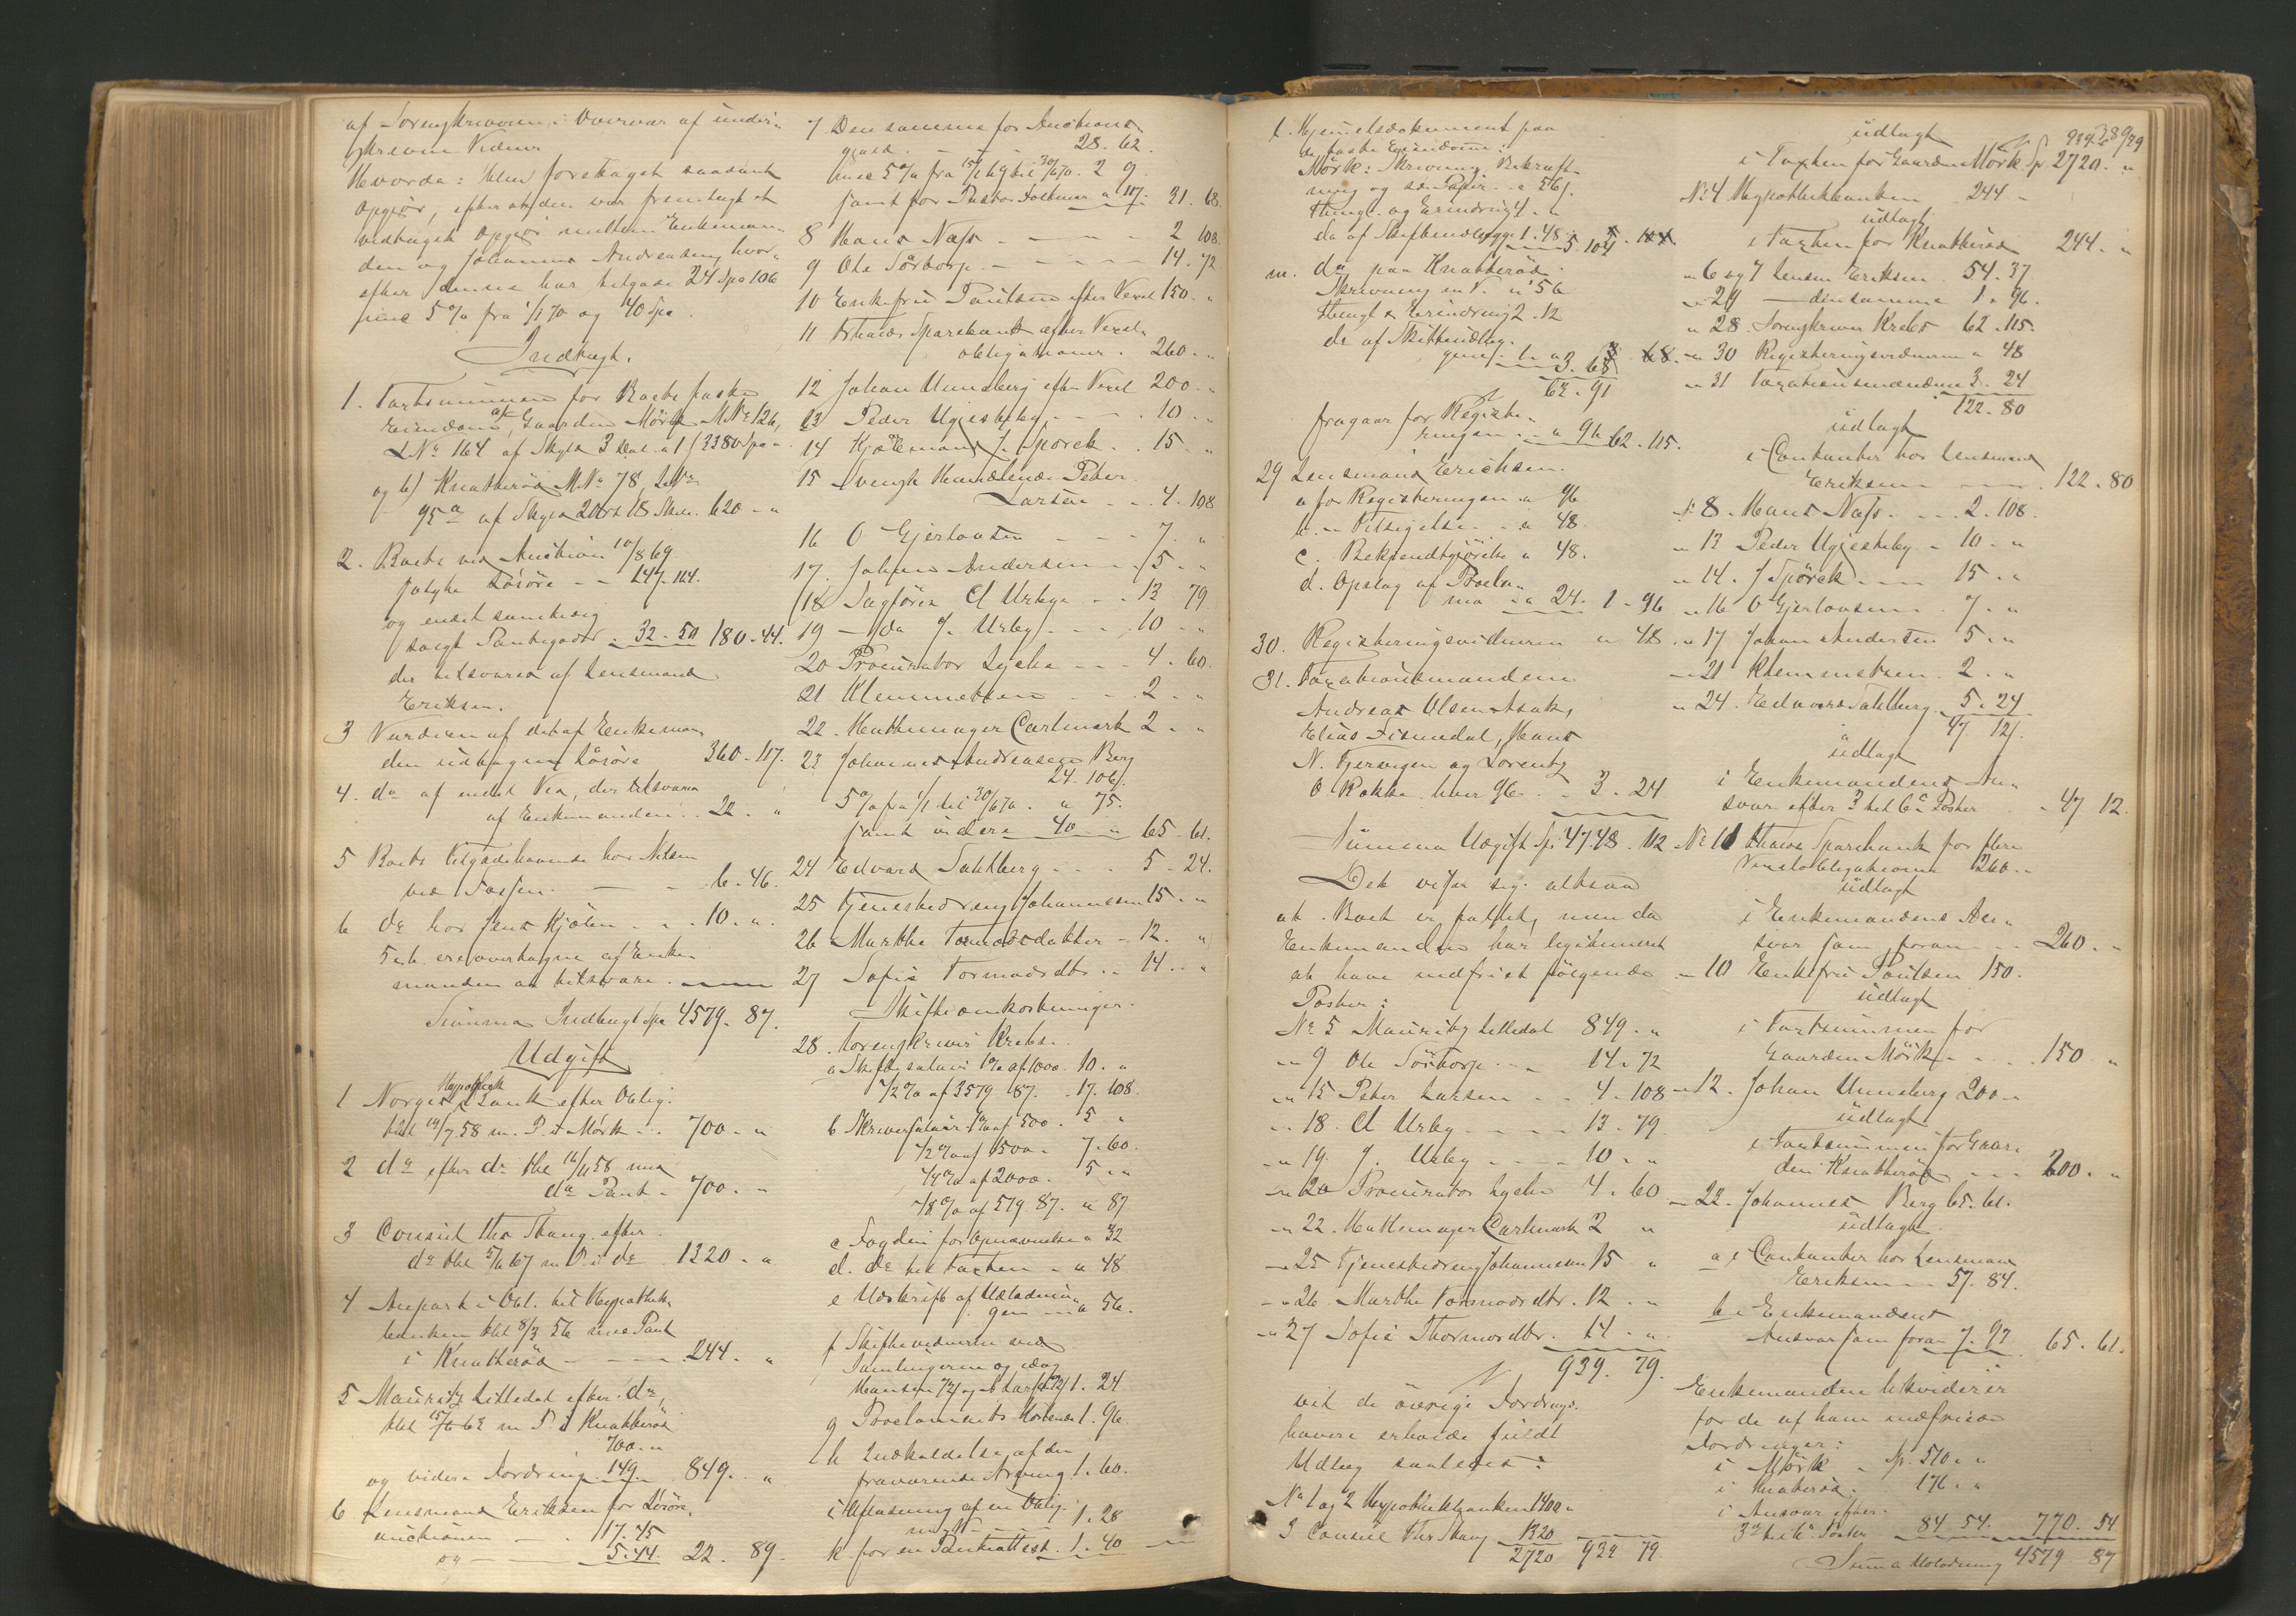 af Sorenskriveren i Overvær af under-
skrevne Vidner.
Hvorda: blev foretaget saadant
Opgjør, efter at der var fremlagt et
vedtaget Opgjør mellem Enkeman-
den og Johannes Andreasen, hvor-
efter denne har tilgode 24 Spd 106
s med 5 % fra 1/1 70 og 40 Spd.
Indtægt.
1. Taxtsummen for Boets faste
Eiendom, af Gaarden Mörk M.No 126,
L No 164 af Skyld 3 Dal. 1 s 3380 Spd "
og b) Knatteröd M.No 78, L.No
95 a af Skyld 2 Ort 18 Skill. 620 - "
2. Boets ved Auction 10/8 69
solgte Lösöre - - 147. 114.
og endel samtidig
solgt Pantegods - 32. 50 180. 44.
der tilsvares af Lensmand
Eriksen.
3 Værdien af det af Enkeman-
den udtagne Lösöre 360. 117.
4. do af endel Ved, der tilsvares
af Enkemanden. 22. "
5 Boets Tilgodehavende hos Nilsen
ved Fossen. - - 6. 46.
6 do hos Jens Kjölen - - 10. "
5 & 6 ere overtagne af Enke-
manden at tilsvare.
Summa Indtægt Spd 4579. 87.
Udgift
1 Norges Hypothek Bank efter Oblig.
dat 14/7 58 m. P. i Mörk - - 700. "
2 do efter do dat 12/11 58 med
do Pant - 700. "
3 Consul Ths Stang efter
do dat 5/6 67 m P. i do 1320. "
4 Anpart i Obl. til Hypothek-
banken dat 8/3 56 med Pant
i Knatteröd - - - 244. "
5 Mauritz Lilledal efter do,
dat 15/6 62 m P. i Knatteröd
700. "
og videre Fordring 149. 849. "
6 Lensmand Eriksen for Lösöre-
auctionen - - 17. 45
og - - 5. 44. 22. 89.
7 Den samme for Auctions-
gjæld - - - 28. 62.
med 5 % fra 15/2 69 til 30/6 70. 2 9.
samt for Pastor " 117. 31. 68.
8 Hans Næss - - - - 2 108.
9 Ole Sörtorp - - - - 14. 72
10 Enkefru Paulsen efter Vexel 150. "
11 Idds Sparebank efter Vexel-
obligationer. 260. "
12 Johan Unneberg efter Vexel 200. "
13 Peder Ugjesteby - - - . 10. "
14 Kjøbmand J. Spörck. . 15. "
15 Svensk Handelsmd. Peter
Larsen - - 4. 108
16 O Gjerlowsen - - - 7. "
17. Johan Andersen - - 5. "
18 Sagfører A Urbye - - 13 79
19 - do J. Urbye - - - 10 - "
20 Procurator Lycke - - - 4. 60.
21 Klemmetsen - - 2. "
22. Hattemager Carlmark 2. "
23 Johannes Andreasen Berg
24. 106.
5 % fra 1/1 til 30/6 70. " 75.
samt videre 40 " 65. 61.
24 Edvard Dahlberg - - - 5. 24.
25 Tjenestedreng Johannesen 15. "
26 Marthe Tormodsdatter - 12. "
27 Sofie Tormodsdtr. - 14. "
Skifteomkostninger.
28. Sorenskriver Krebs.
a Skiftesalair 1% af 1000. 10. "
1/2 % af 3579 87. 17. 108.
b Skriversalair 1% af 500. 5 "
1/2 % af 1500. 7. 60.
1/4 % af 2000. 5 "
1/8 % af 579 87. " 87
c Fogden for Opnævnelse " 32
d. do til Taxten - " 48
e Udskrift af Udlodnin-
gen - " 56.
f Skiftevidnerne ved
Samlingerne og idag
Hansen 72 og Larsen 72 1. 24
g Proclamaets Kostende 1. 96.
h Indkaldelse af den
fraværende Arving 1. 60.
i Aflæsning af en Oblig.
1. 28
k for en Pantattest. 1. 40
l. Hjemmelsdokument paa
de faste Eiendomme:
Mörk: Skrivning, Bekræft-
ning og Papir. " 56.
thingl. og Erindring 4. "
do af Skifteudlæg 1. 48 5. 104
m. do paa Knatteröd.
Skrivning m. V. " 56
thingl & Erindring 2. 12
do af Skifteudlæg-
3. 68.
62. 91
fragaar for Registe-
ringen - " 96 62. 115.
29 Lensmand Erichsen.
a for Registeringen " 96
b. " Tilsigelse. - " 48.
c. Bekjendtgjörelse " 48.
d. Opslag af Procla-
ma " 24. 1. 96
30. Registeringsvidnerne " 48
31. Taxationsmændene
Andreas Olsen Asak,
Elias Tismedal, Hans
N. og Lorentz
O Rokke hver 96. - 3. 24
Summa Udgift Sp. 4748. 112
Det viser sig altsaa
at Boet er fallit, men da
Enkemanden har legitimeret
at have indfriet følgende
Poster:
No 5 Mauritz Lilledal 849. "
" 9 Ole Sörtorp - - 14. 72
" 15 Peter Larsen - - 4. 108
" 18. A Urbye - - - 13. 79
" 19. J. Urbye - - - 10. "
" 20 Procurator Lycke 4. 60
" 22. Hattemager Carlmark 2 "
" 25 Tjenestedreng Johannesen 15 "
" 26. Marthe Tormodsdtr. 12. "
" 27 Sofie Thormodsdtr. 14. "
939. 79.
vil de övrige Fordrings-
havere erholde fuldt
Udlæg saaledes:
No 1 og 2 Hypothekbanken 1400 "
3 Consul Ths Stang 1320
2720 939 79
939 79
udlagt
i Taxten for Gaarden Mörk Sp 2720. "
No 4 Hypothekbanken 244 -
udlagt
i Taxten for Knatteröd 244. "
" 6 og 7 Lensm. Eriksen 54. 37
" 29 - den samme 1. 96.
" 28. Sorenskriver Krebs 62. 115.
" 30 Registeringsvidnerne " 48
" 31 Taxationsmændene 3. 24
122. 80
udlagt
i Contanter hos Lensmand
Eriksen - - 122. 80
No 8. Hans Næss - - 2. 108.
" 13 Peder Ugjesteby - 10. "
" 14. J Spörck - - 15. "
" 16 O Gjerlowsen - 7. "
" 17 Johan Andersen 5. "
" 21 Klemmetsen. 2. "
" 24. Edvard Dahlberg. 5. 24
47 12.
udlagt
i Enkemandens An-
svar efter 3 til 6te Poster - 47 12.
No 11 Idds Sparebank for flere
Vexelobligationer 260. "
udlagt
i Enkemandens An-
svar som foran - - 260. "
" 10 Enkefru Paulsen 150.
udlagt
i Taxtsummen for
Gaarden Mörk - - - 150 "
" 12. Johan Unneberg 200. "
udlagt
i Taxtsummen for Gaar-
den Knatteröd - - - 200. "
" 22. Johannes Berg 65. 61.
udlagt
a i Contanter hos Lensmand
Eriksen - - 57. 84.
b i Enkemandens
Ansvar som foran 7. 97 65. 61.
Enkemanden likviderer
for de af ham indfriede
Fordringer:
i Mörk - Sp. 510. "
i Knatteröd. 176. "
i Ansvar efter
3die til 6te Poster 84 54. 770. 54
Summa Udlodning 4579 87